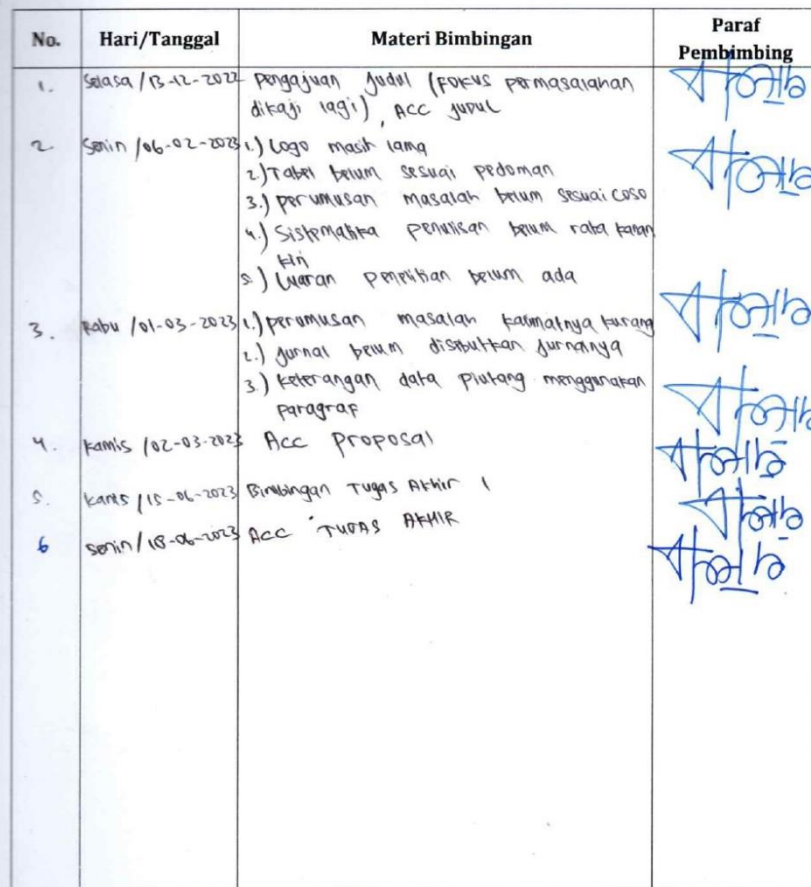 No. Hari/Tanggal Materi Bimbingan Paraf
Pembimbing
1. Selasa / 13-12-2022 Pengajuan Judul (Fokus permasalahan
dikaji lagi), ACC JUDUL
2. Senin / 06-02-2023 1.) Logo masih lama
2.) Tabel belum sesuai pedoman
3.) perumusan masalah belum sesuai COSO
4.) Sistematika penulisan belum rata kanan
kiri
5.) Luaran penelitian belum ada
3. Rabu / 01-03-2023 1.) perumusan masalah kalimatnya kurang
2.) Jurnal belum disebutkan jurnalnya
3.) keterangan data piutang menggunakan
paragraf
4. Kamis / 02-03-2023 Acc proposal
5. Kamis / 15-06-2023 Bimbingan Tugas Akhir 1
6 Senin / 18-06-2023 Acc TUGAS AKHIR